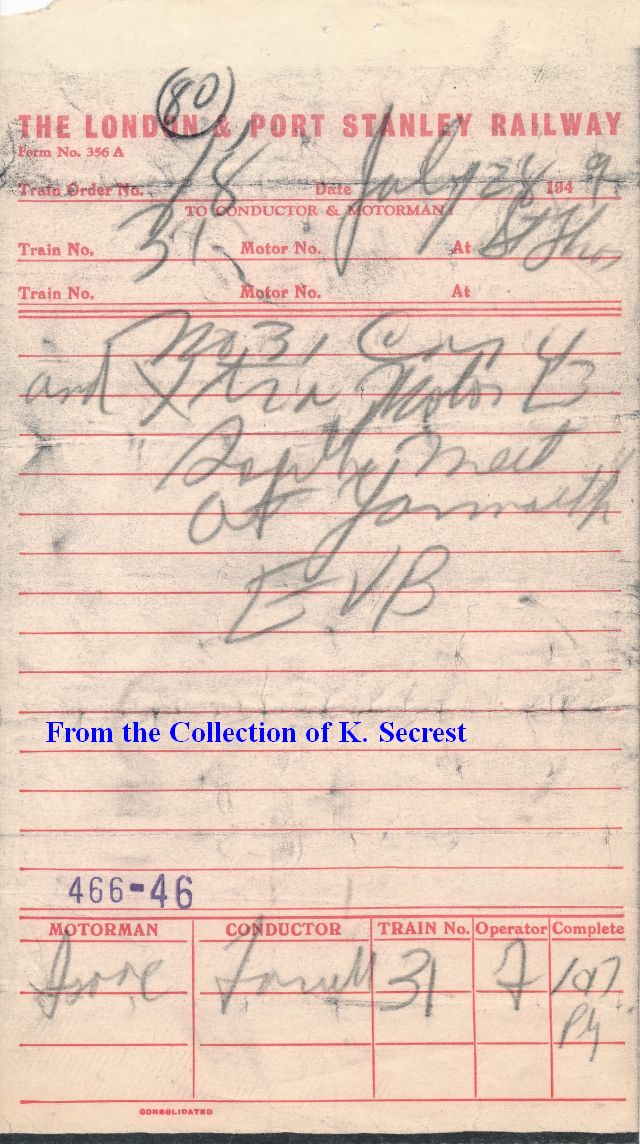 (80)
THE LONDON & PORT STANLEY RAILWAY
Form No. 356 A
Train Order No. 18 Date July 28 1949
TO CONDUCTOR & MOTORMAN:
Train No. 31 Motor No. At St Thos
Train No. Motor No. At
No. 31 Car 43
and Xtra Motor
meet
at Yarmouth
EVB
From the Collection of K. Secrest
466-46
MOTORMAN CONDUCTOR TRAIN No. Operator Complete
31 F 107
CONSOLIDATED